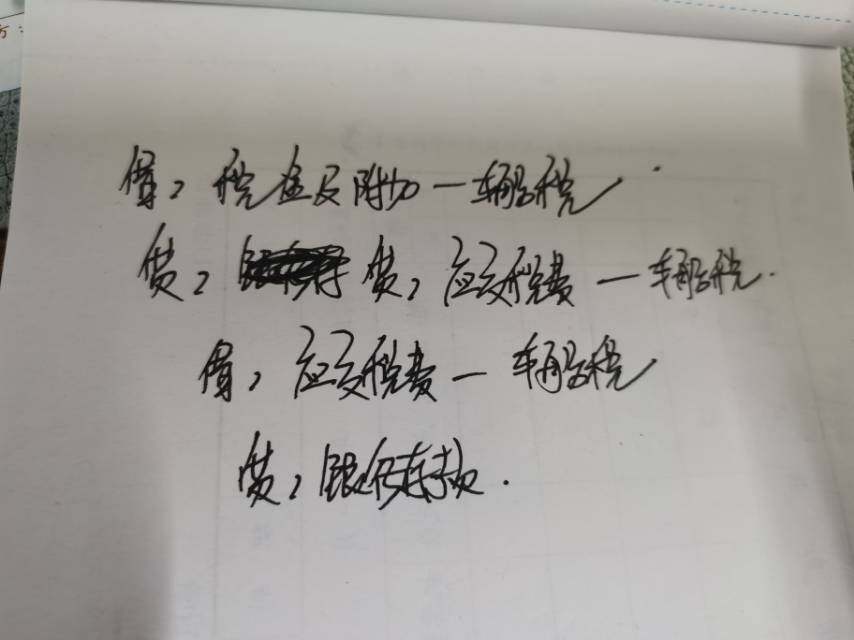 借：税金及附加一车船税
贷：贷：应交税费一车船税.
借：应交税费一车船税
贷：银行存款.